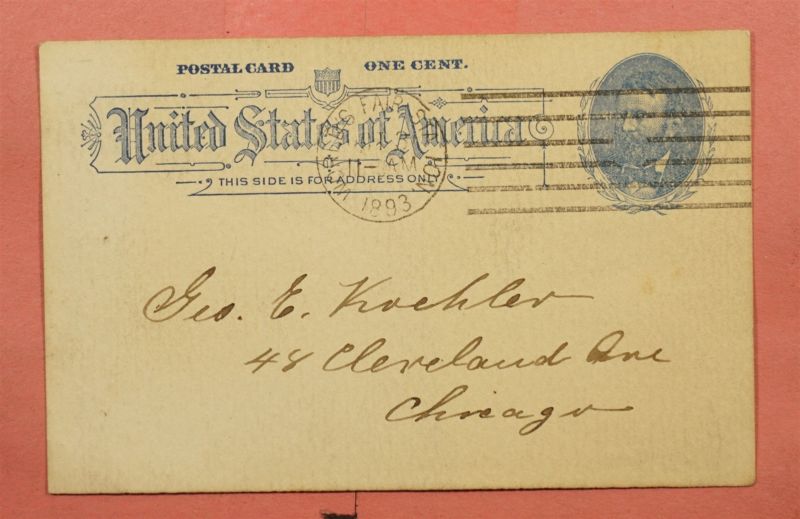 POSTAL CARD ONE CENT.
United States of America
THIS SIDE IS FOR ADDRESS ONLY
WORLD'S FAIR
AM
1893
Geo. E. Koehler
48 Cleveland Ave
Chicago